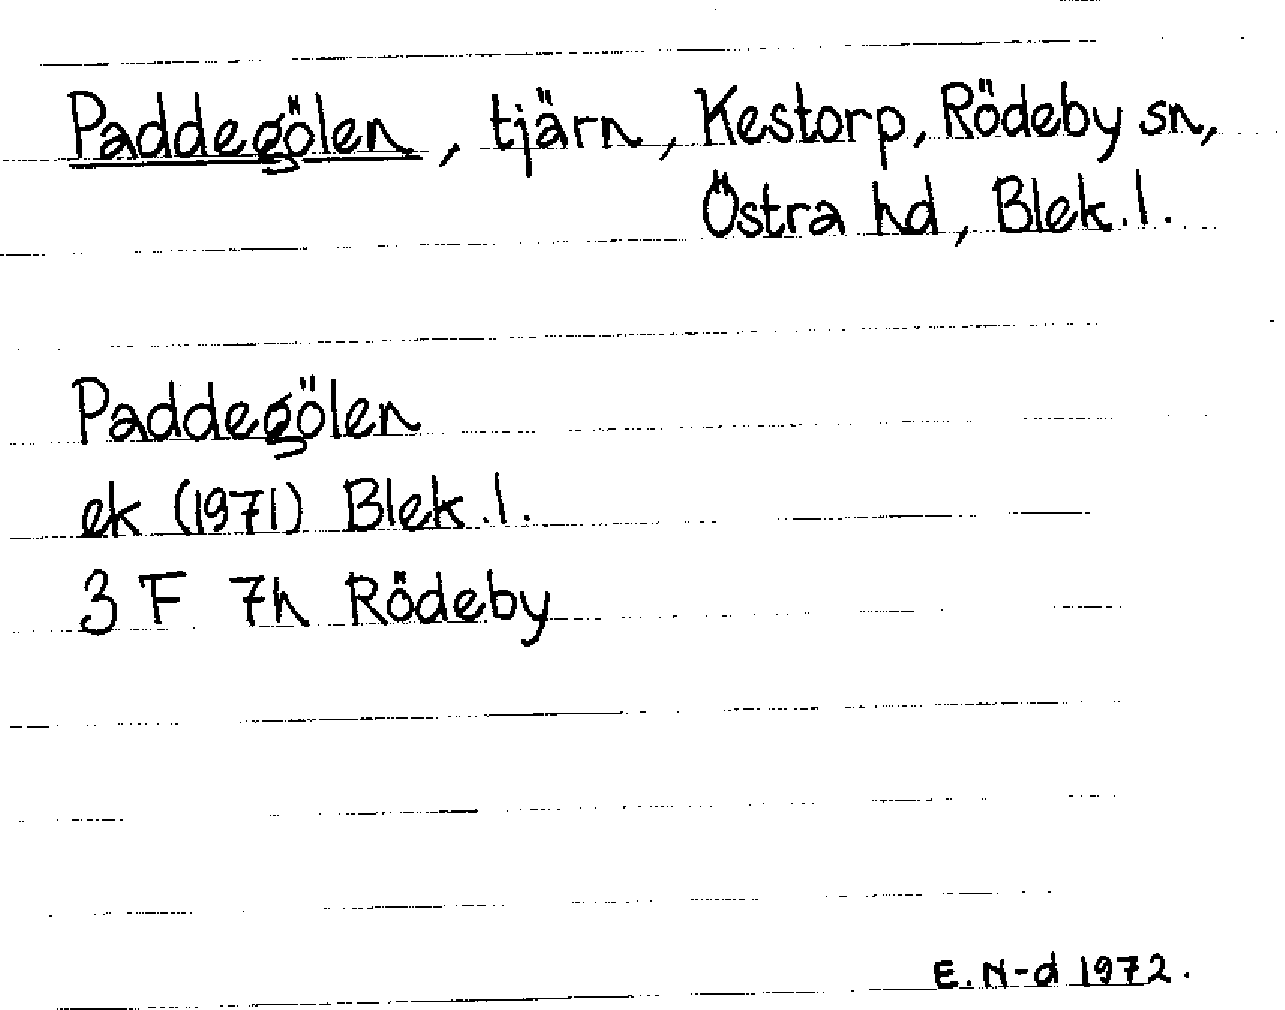 Paddegölen, tjärn, Kestorp, Rödeby sn,
Östra hd, Blek.l.
Paddegölen
ek (1971) Blek.l.
3 F 7h Rödeby
E. N-d 1972.